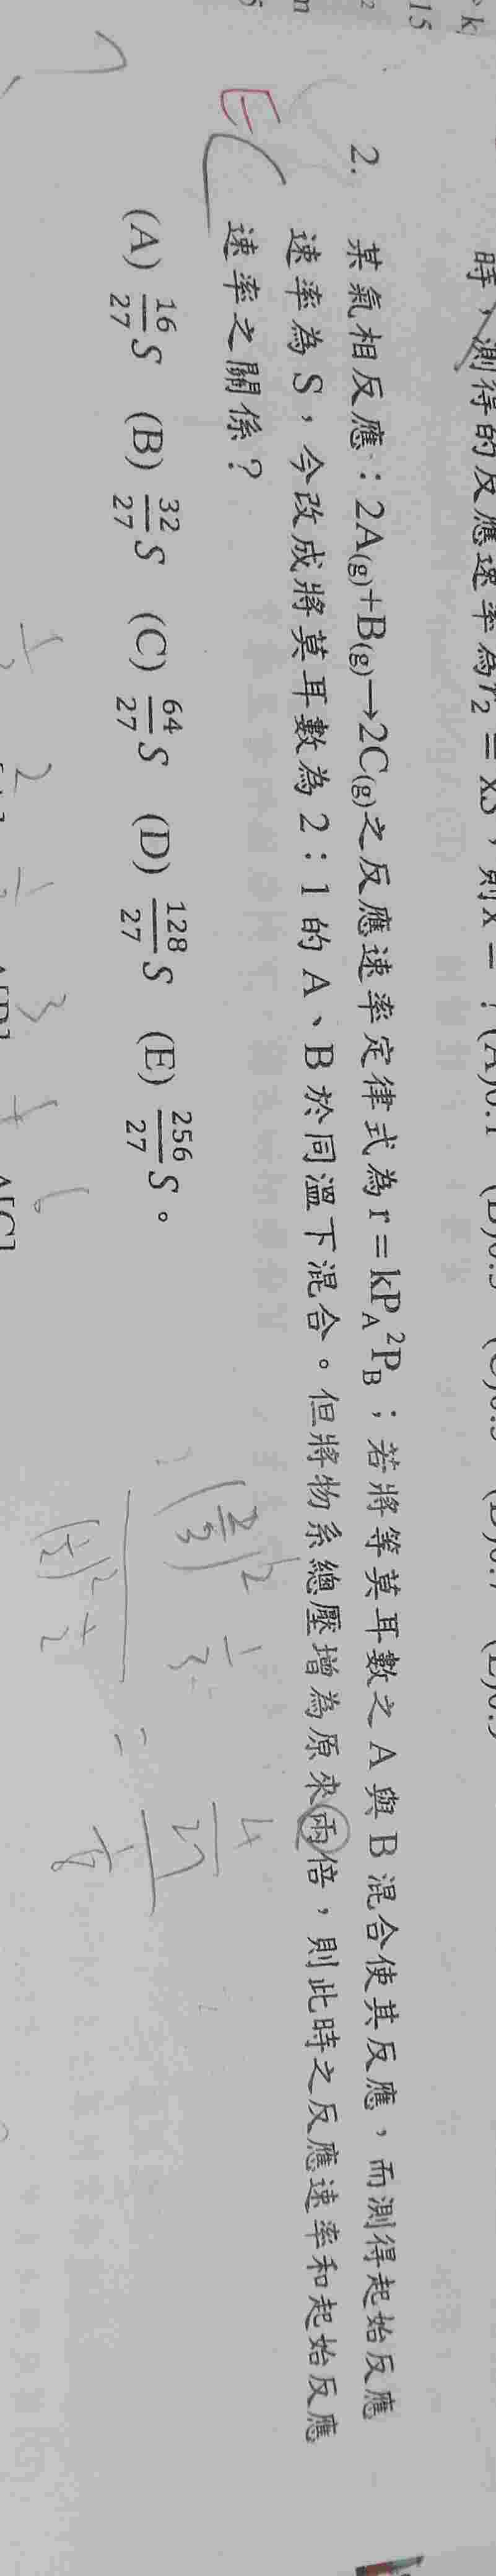 時，測得的反應速率為r₂＝xS，則x＝？(A)0.1
2. 某氣相反應：2A(g)+B(g)→2C(g)之反應速率定律式為r＝kP_A²P_B；若將等莫耳數之A與B混合使其反應，而測得起始反應
速率為S，今改成將莫耳數為2：1的A、B於同溫下混合。但將物系總壓增為原來兩倍，則此時之反應速率和起始反應
速率之關係？
(A) 16/27 S (B) 32/27 S (C) 64/27 S (D) 128/27 S (E) 256/27 S。
E
(2/3)² 1/3
(1/2)² 1/2
=
4/27
1/8